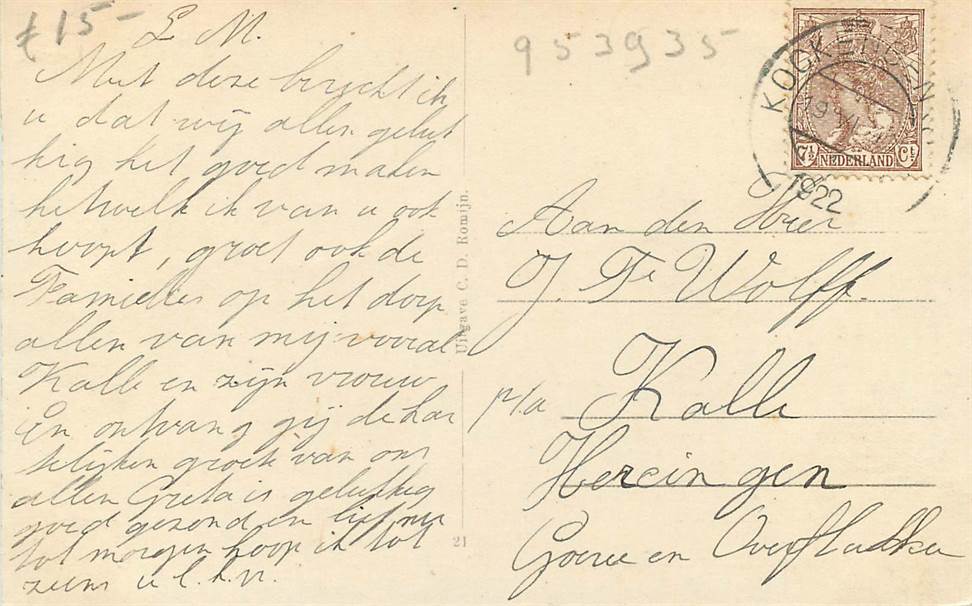 £ 15-
L M.
Met deze bericht ik
u dat wij allen geluk
kig het goed maken
hetwelk ik van u ook
hoopt, groet ook de
Families op het dorp
allen van mij vooral
Kalle en zijn vrouw
En ontvang gij de har
telijken groet van ons
allen Greta is gelukkig
goed gezond en lief, nu
tot morgen hoop ik tot
ziens u l. h. v.
Uitgave C. D. Romijn.
21
953935
KOCKENGEN
1922
7½ NEDERLAND Ct
Aan den Heer
J. Fr Wolff.
p/a Kalle
Hercingen
Goeree en Overflakkee